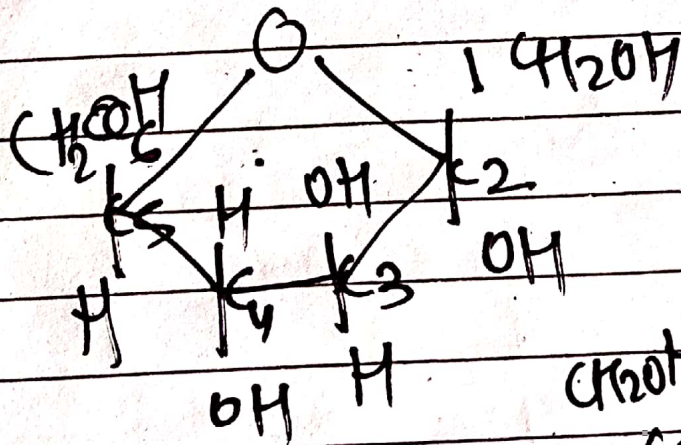 O
1 CH2OH
CH2OH
6
C5 H OH C2
H C4 C3 OH
OH H CH2OH